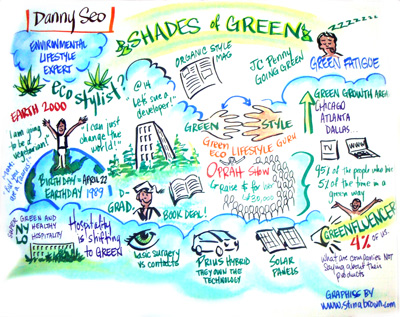 Danny Seo
SHADES of GREEN
ENVIRONMENTAL
LIFESTYLE
EXPERT
eco
stylist?
EARTH 2000
I am
going to
be a
vegetarian!
I can just
change the
world!!
BIRTHDAY = APRIL 22
EARTHDAY 1989
@ 14
Let's sue a
developer!
ORGANIC STYLE
MAG
JC Penny
GOING GREEN
ZZZZZZZ
GREEN FATIGUE
GREEN
STYLE
GREEN LIFESTYLE GURU
ECO
OPRAH SHOW
GREEN GROWTH AREA:
CHICAGO
ATLANTA
DALLAS...
TV
WWW
D-
GRAD.
BOOK DEAL!
NY
LO
GREEN AND
HEALTHY
HOSPITALITY
Hospitality
is shifting
to GREEN
basic surgery
vs contacts
PRIUS HYBRID
THEY OWN THIS
TECHNOLOGY
SOLAR
PANELS
GREENFLUENCER
4%
OF U.S.
WHAT ARE COMPANIES NOT
SAYING ABOUT THEIR
PRODUCTS
GRAPHICS BY
www.stinabrown.com